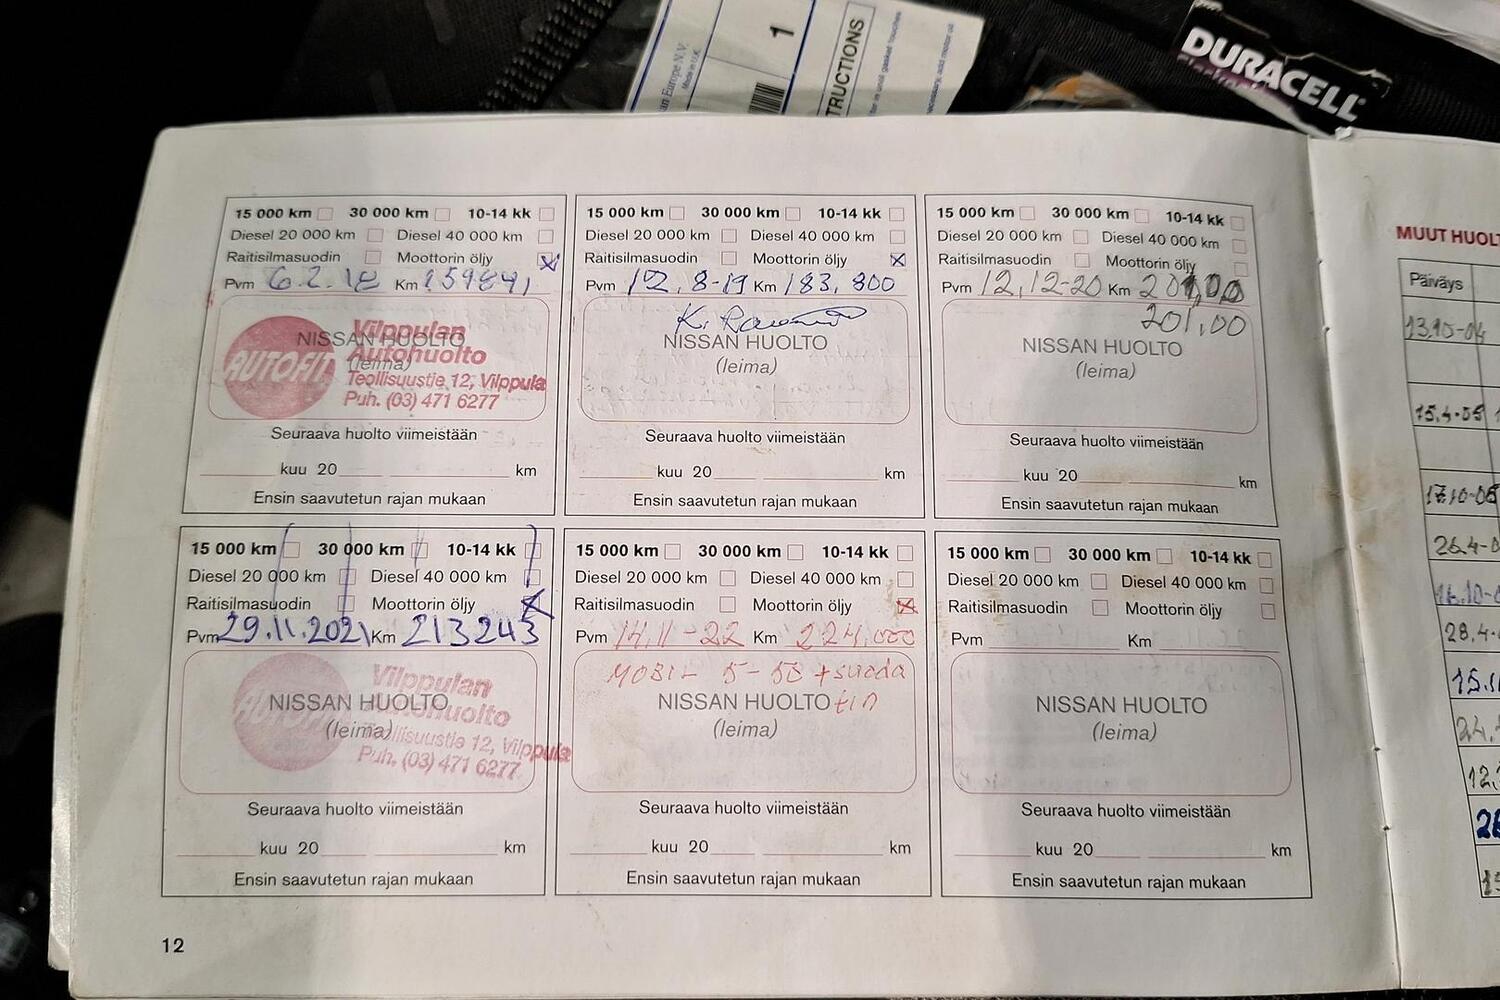 1
TRUCTIONS
Made in U.K.
DURACELL
15 000 km 30 000 km 10-14 kk
Diesel 20 000 km Diesel 40 000 km
Raitisilmasuodin Moottorin öljy
Pvm 6.2.18 Km 159841
Vilppulan
NISSAN HUOLTO
Autohuolto
AUTOFIT
(leima)
Teollisuustie 12, Vilppula
Puh. (03) 471 6277
Seuraava huolto viimeistään
kuu 20 km
Ensin saavutetun rajan mukaan
15 000 km 30 000 km 10-14 kk
Diesel 20 000 km Diesel 40 000 km
Raitisilmasuodin Moottorin öljy
Pvm 12.8-19 Km 183,800
NISSAN HUOLTO
(leima)
Seuraava huolto viimeistään
kuu 20 km
Ensin saavutetun rajan mukaan
15 000 km 30 000 km 10-14 kk
Diesel 20 000 km Diesel 40 000 km
Raitisilmasuodin Moottorin öljy
Pvm 12,12-20 Km
201,00
NISSAN HUOLTO
(leima)
Seuraava huolto viimeistään
kuu 20 km
Ensin saavutetun rajan mukaan
15 000 km 30 000 km 10-14 kk
Diesel 20 000 km Diesel 40 000 km
Raitisilmasuodin Moottorin öljy
Pvm 29.11.2021 Km 213243
Vilppulan
NISSAN HUOLTO
Autohuolto
AUTOFIT
(leima)
Teollisuustie 12, Vilppula
Puh. (03) 471 6277
Seuraava huolto viimeistään
kuu 20 km
Ensin saavutetun rajan mukaan
15 000 km 30 000 km 10-14 kk
Diesel 20 000 km Diesel 40 000 km
Raitisilmasuodin Moottorin öljy
Pvm 14.11-22 Km 224.000
MOBIL 5-50 + suoda
tin
NISSAN HUOLTO
(leima)
Seuraava huolto viimeistään
kuu 20 km
Ensin saavutetun rajan mukaan
15 000 km 30 000 km 10-14 kk
Diesel 20 000 km Diesel 40 000 km
Raitisilmasuodin Moottorin öljy
Pvm Km
NISSAN HUOLTO
(leima)
Seuraava huolto viimeistään
kuu 20 km
Ensin saavutetun rajan mukaan
12
MUUT HUOLT
Päiväys
13.10-04
15.4-05
17.10-05
26.4-0
16.10-0
28.4-